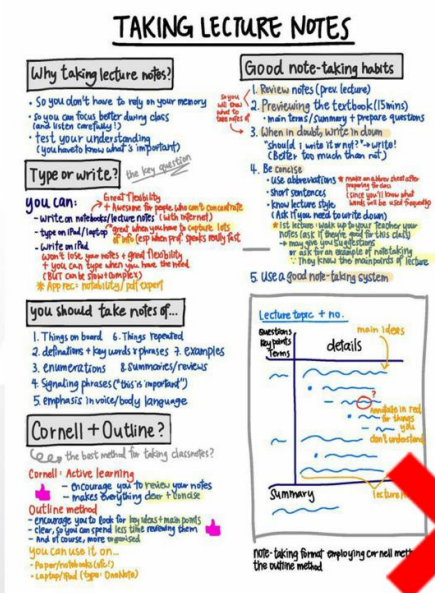 TAKING LECTURE NOTES
Why taking lecture notes?
• So you don't have to rely on your memory
• So you can focus better during class
(and listen carefully!)
• test your understanding
(you have to know what's important)
Type or write?
the key question
you can:
Great flexibility
+ Awesome for people who can't concentrate
- write on notebooks/lecture notes (with internet)
- type on iPad/laptop great when you have to capture lots
of info (esp when prof. speaks really fast
- write on iPad
won't lose your notes + great flexibility
+ you can type when you have the need
(BUT can be slow + complex)
* App rec: notability/pdf expert
you should take notes of...
1. Things on board 6. Things repeated
2. definations + key words & phrases 7. examples
3. enumerations 8. summaries/reviews
4. Signaling phrases ("this is important")
5. emphasis in voice/body language
Cornell + Outline?
the best method for taking class notes?
Cornell: Active learning
- encourage you to review your notes
- makes everything clear + concise
Outline method
- encourage you to look for key ideas + main points
- clear, so you can spend less time reviewing them
- And of course, more organised
you can use it on...
- Paper/notebooks (etc!)
- Laptop/iPad (type: OneNote)
Good note-taking habits
1. Review notes (prev. lecture)
2. Previewing the textbook (15mins)
• main terms/summary + prepare questions
so you will know what to take notes of
3. When in doubt, write in down
"should i write it or not?" → write!
(Better too much than not)
4. Be concise
• use abbreviations * make an abbrev cheat sheet after
preparing for class
• short sentences
(since you'll know what
words will be used frequently)
• know lecture style
(Ask if you need to write down)
* 1st lecture: walk up to your teacher your
notes (ask if they're good for this class)
→ may give you suggestions
or ask for an example of notetaking
∵ They know the main points of lecture
5. use a good note-taking system
Lecture topic + no.
Questions
Key points
Terms
details
main ideas
?
Annotate in red
for things
you
don't understand
Summary
lecture
note-taking format employing cornell
the outline method